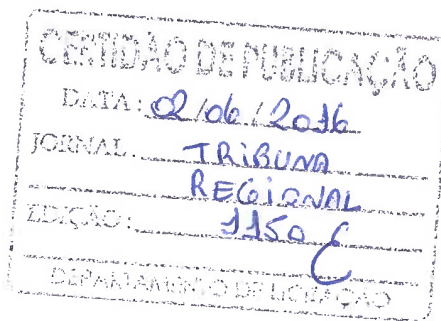 CERTIDÃO DE PUBLICAÇÃO
DATA: 02/06/2016
JORNAL: TRIBUNA
REGIONAL
EDIÇÃO: 1150
DEPARTAMENTO DE LICITAÇÃO